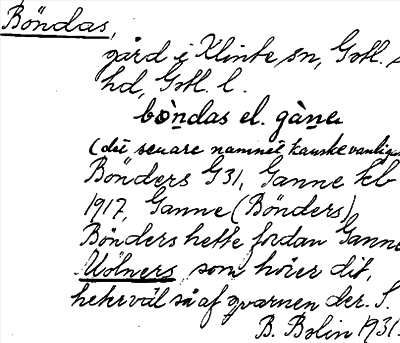 Böndas,
gård i Klinte sn, Gotl. s
hd, Gotl. l.
bòndas el. gàna
(det senare namnet kanske vanligas
Bönders G31, Ganne kb
1917, Ganne (Bönders)
Bönders hette fordan Ganne
Mölners som hörer dit,
heter väl så af qvarnen der. S.
B. Bolin 1931.